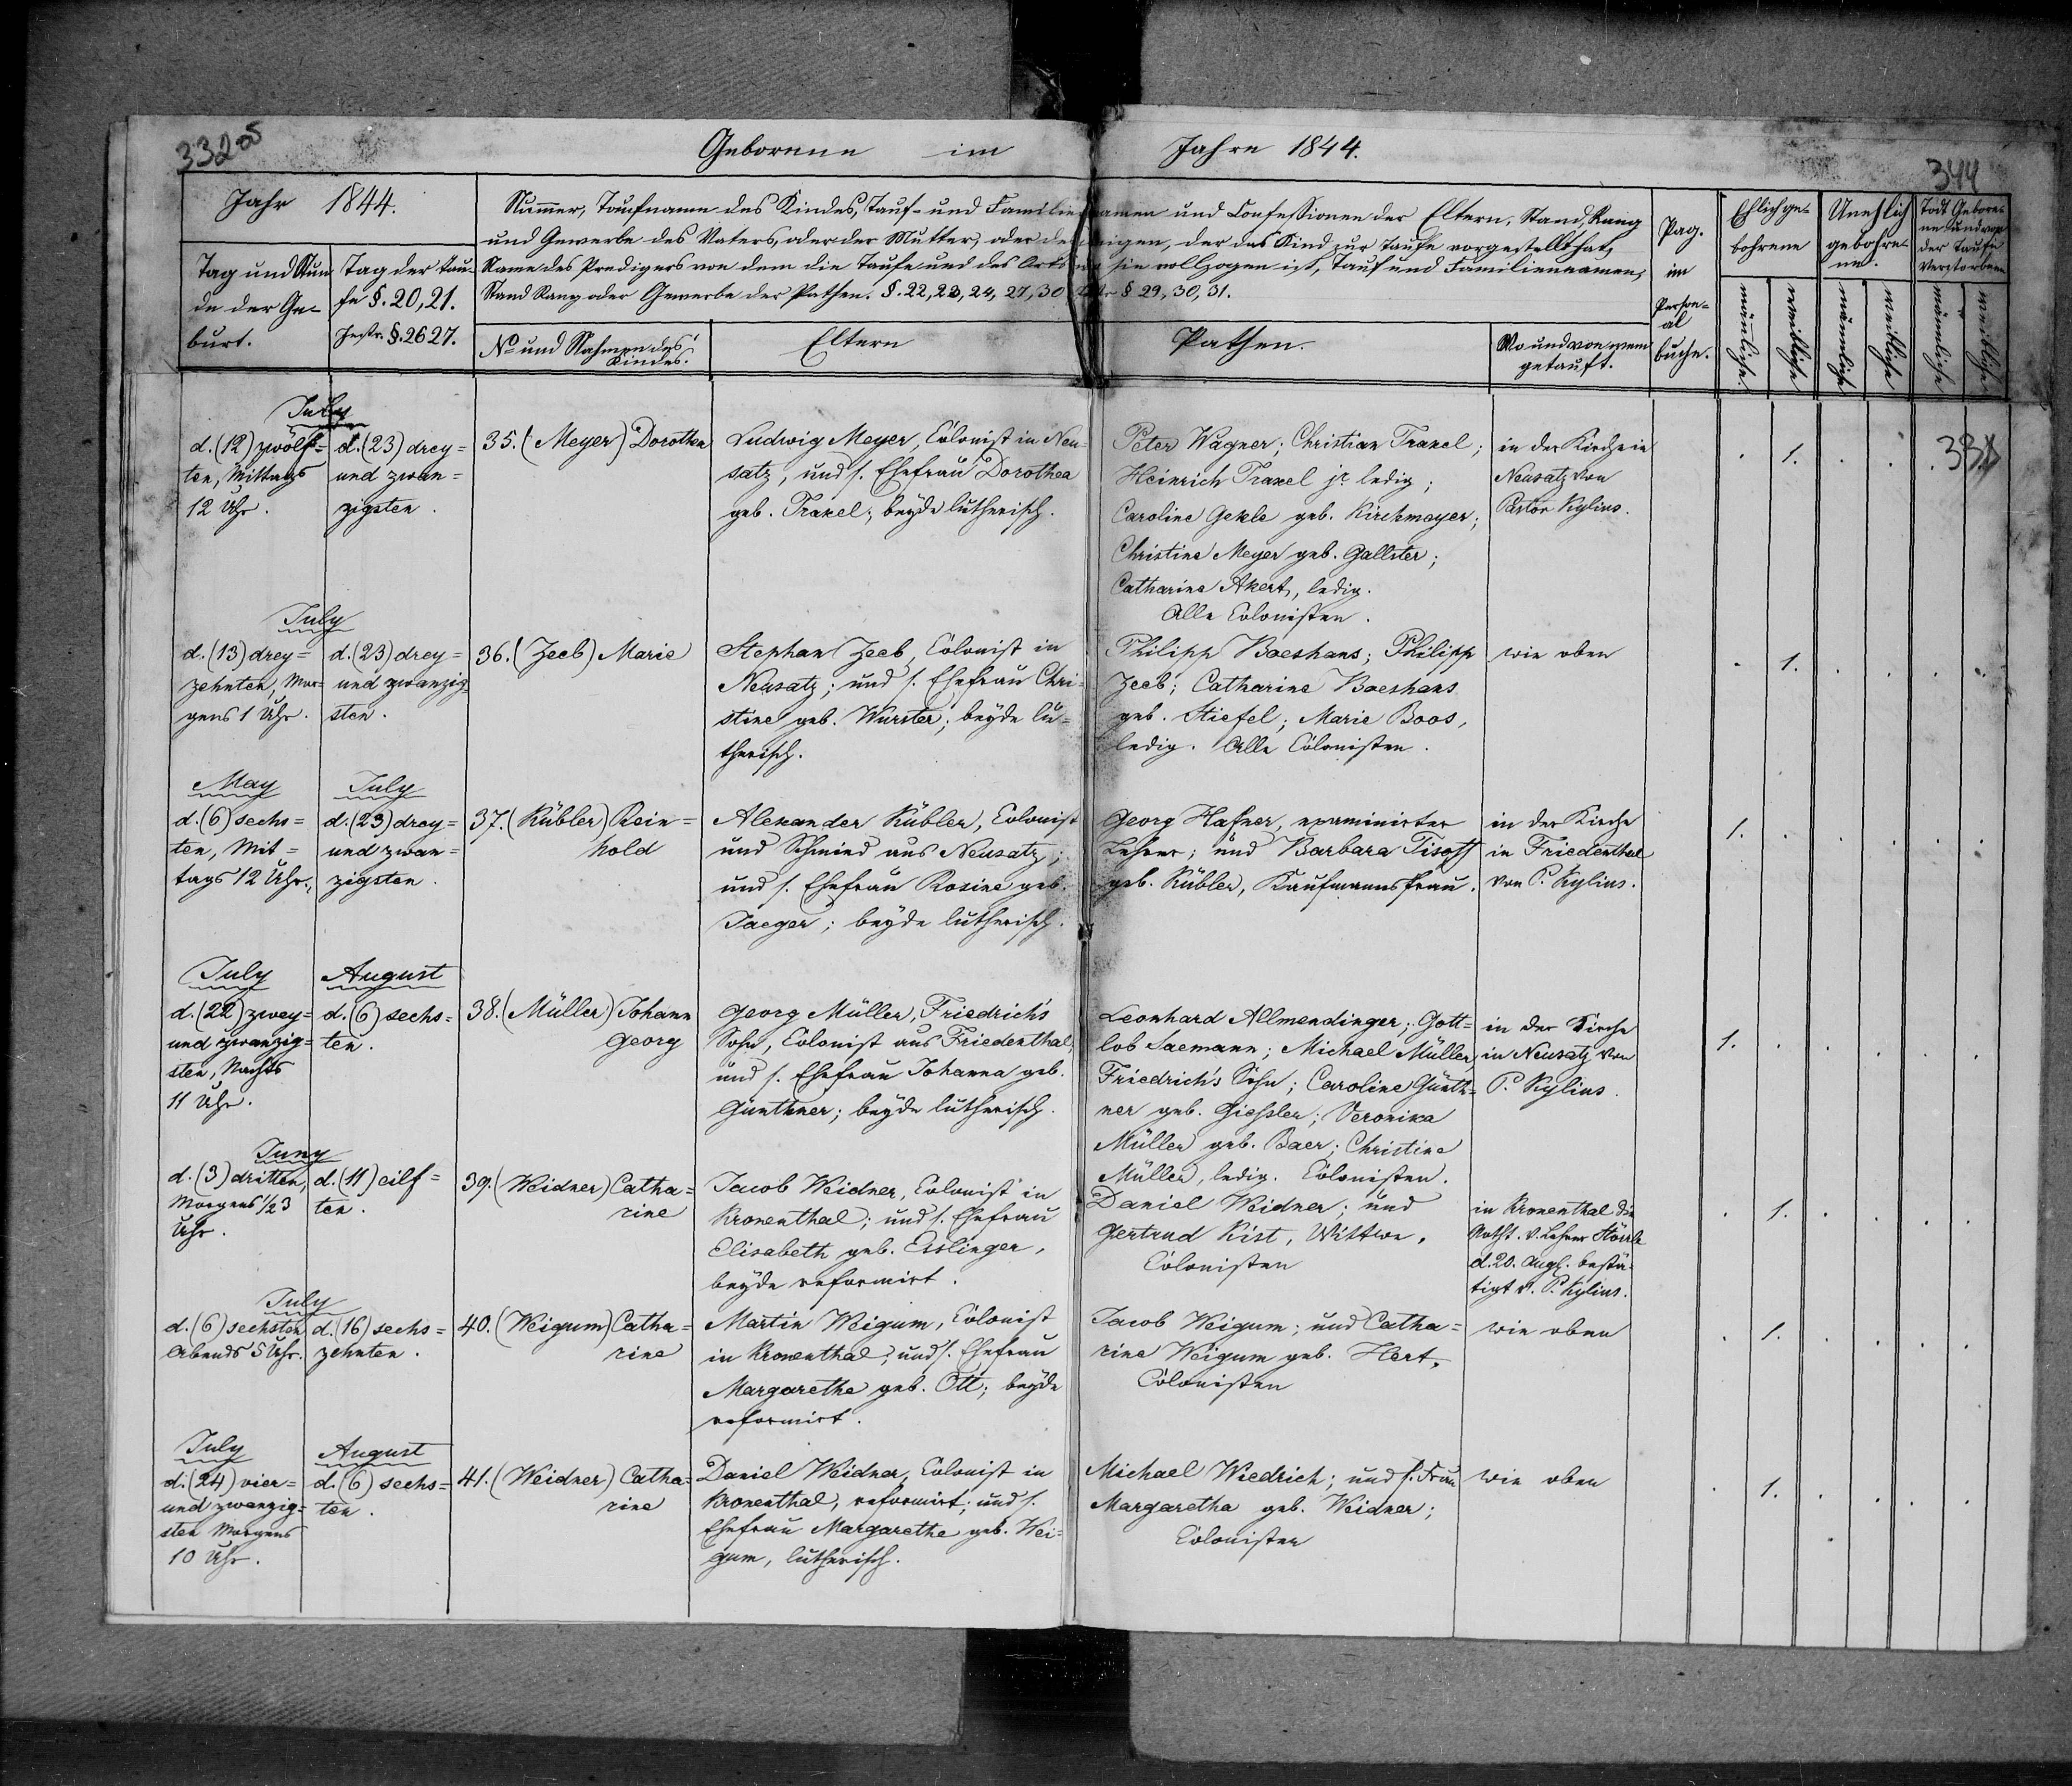 Geborene im Jahre 1844.
344
Jahr 1844.
Tag und Stun
de der Ge=
burt.
Tag der Tau=
fe §. 20, 21.
Instr. §. 26 27.
Nummer, Taufname des Kindes, Tauf- und Familiennamen und Confessionen der Eltern, Stand, Rang
und Gewerbe des Vaters, oder der Mutter, oder desjenigen, der das Kind zur Taufe vorgestellt hat,
Name des Predigers von dem die Taufe und des Orts wo sie vollzogen ist, Tauf und Familiennamen,
Stand Rang oder Gewerbe der Pathen. §. 22, 23, 24, 27, 30 Instr § 29, 30, 31.
No und Nahmen des
Kindes.
Eltern
Pathen.
Wo und von wem
getauft.
Pag.
im
Person=
al
buche.
Ehlich ge=
bohrene
Unehlich
gebohre=
ne.
Todt Gebore=
ne und vor
der Taufe
Verstorbene
männliche
weibliche
männliche
weibliche
männliche
weibliche
July
d. (12) zwölf=
ten, Mittags
12 Uhr.
d. (23) drey=
und zwan=
zigsten.
35. (Meyer) Dorothea
Ludwig Meyer, Colonist in Neu=
satz, und s. Ehefrau Dorothea
geb. Traxel; beyde lutherisch.
Peter Wagner; Christian Traxel;
Heinrich Traxel jr. ledig;
Caroline Gekle geb. Kirchmeyer;
Christine Meyer geb. Gallster;
Catharina Akert, ledig.
Alle Colonisten.
in der Kirche in
Neusatz von
Pastor Kylius.
1.
July
d. (13) drey=
zehnten, Mor=
gens 1 Uhr.
d. (23) drey=
und zwanzig=
sten.
36. (Zeeb) Marie
Stephan Zeeb, Colonist in
Neusatz; und s. Ehefrau Chri=
stine geb. Wurster; beyde lu=
therisch.
Philipp Baeshans; Philipp
Zeeb; Catharine Baeshans
geb. Stiefel; Marie Boos,
ledig. Alle Colonisten.
wie oben
1.
May
d. (6) sechs=
ten, Mit=
tags 12 Uhr.
July
d. (23) drey=
und zwan=
zigsten.
37. (Kübler) Rein=
hold
Alexander Kübler, Colonist
und Schmied aus Neusatz;
und s. Ehefrau Rosine geb.
Jaeger; beyde lutherisch.
Georg Hafner, examinirter
Lehrer; und Barbara Tisoff
geb. Kübler, Kaufmannsfrau.
in der Kirche
in Friedenthal
von P. Kylius.
1.
July
d. (22) zwey=
und zwanzig=
sten, Nachts
11 Uhr.
August
d. (6) sechs=
ten.
38. (Müller) Johann
Georg
Georg Müller, Friedrich's
Sohn, Colonist aus Friedenthal,
und s. Ehefrau Johanna geb.
Günthner; beyde lutherisch.
Leonhard Allmendinger; Gott=
lob Saemann; Michael Müller,
Friedrich's Sohn; Caroline Günth=
ner geb. Giessler; Veronika
Müller geb. Baer; Christine
Müller, ledig. Colonisten.
in der Kirche
in Neusatz von
P. Kylius.
1.
Juny
d. (3) dritten,
Morgens 1/2 3
Uhr.
d. (11) eilf=
ten.
39. (Weidner) Catha=
rine
Jacob Weidner, Colonist in
Kronenthal; und s. Ehefrau
Elisabeth geb. Esslinger,
beyde reformirt.
Daniel Weidner; und
Gertrud Kist, Wittwe.
Colonisten
in Kronenthal die
Notht. v. Lehrer Störrle
d. 20. Aug. bestä=
tigt v. P. Kylius.
1.
July
d. (6) sechsten
Abends 5 Uhr.
d. (16) sechs=
zehnten.
40. (Weigum) Catha=
rine
Martin Weigum, Colonist
in Kronenthal; und s. Ehefrau
Margarethe geb. Ott; beyde
reformirt.
Jacob Weigum; und Catha=
rine Weigum geb. Hert.
Colonisten
wie oben
1.
July
d. (24) vier=
und zwanzig=
sten Morgens
10 Uhr.
August
d. (6) sechs=
ten.
41. (Weidner) Catha=
rine
Daniel Weidner, Colonist in
Kronenthal, reformirt; und s.
Ehefrau Margarethe geb. Wei=
gum, lutherisch.
Michael Wiedrich; und s. Frau
Margaretha geb. Weidner;
Colonisten
wie oben
1.